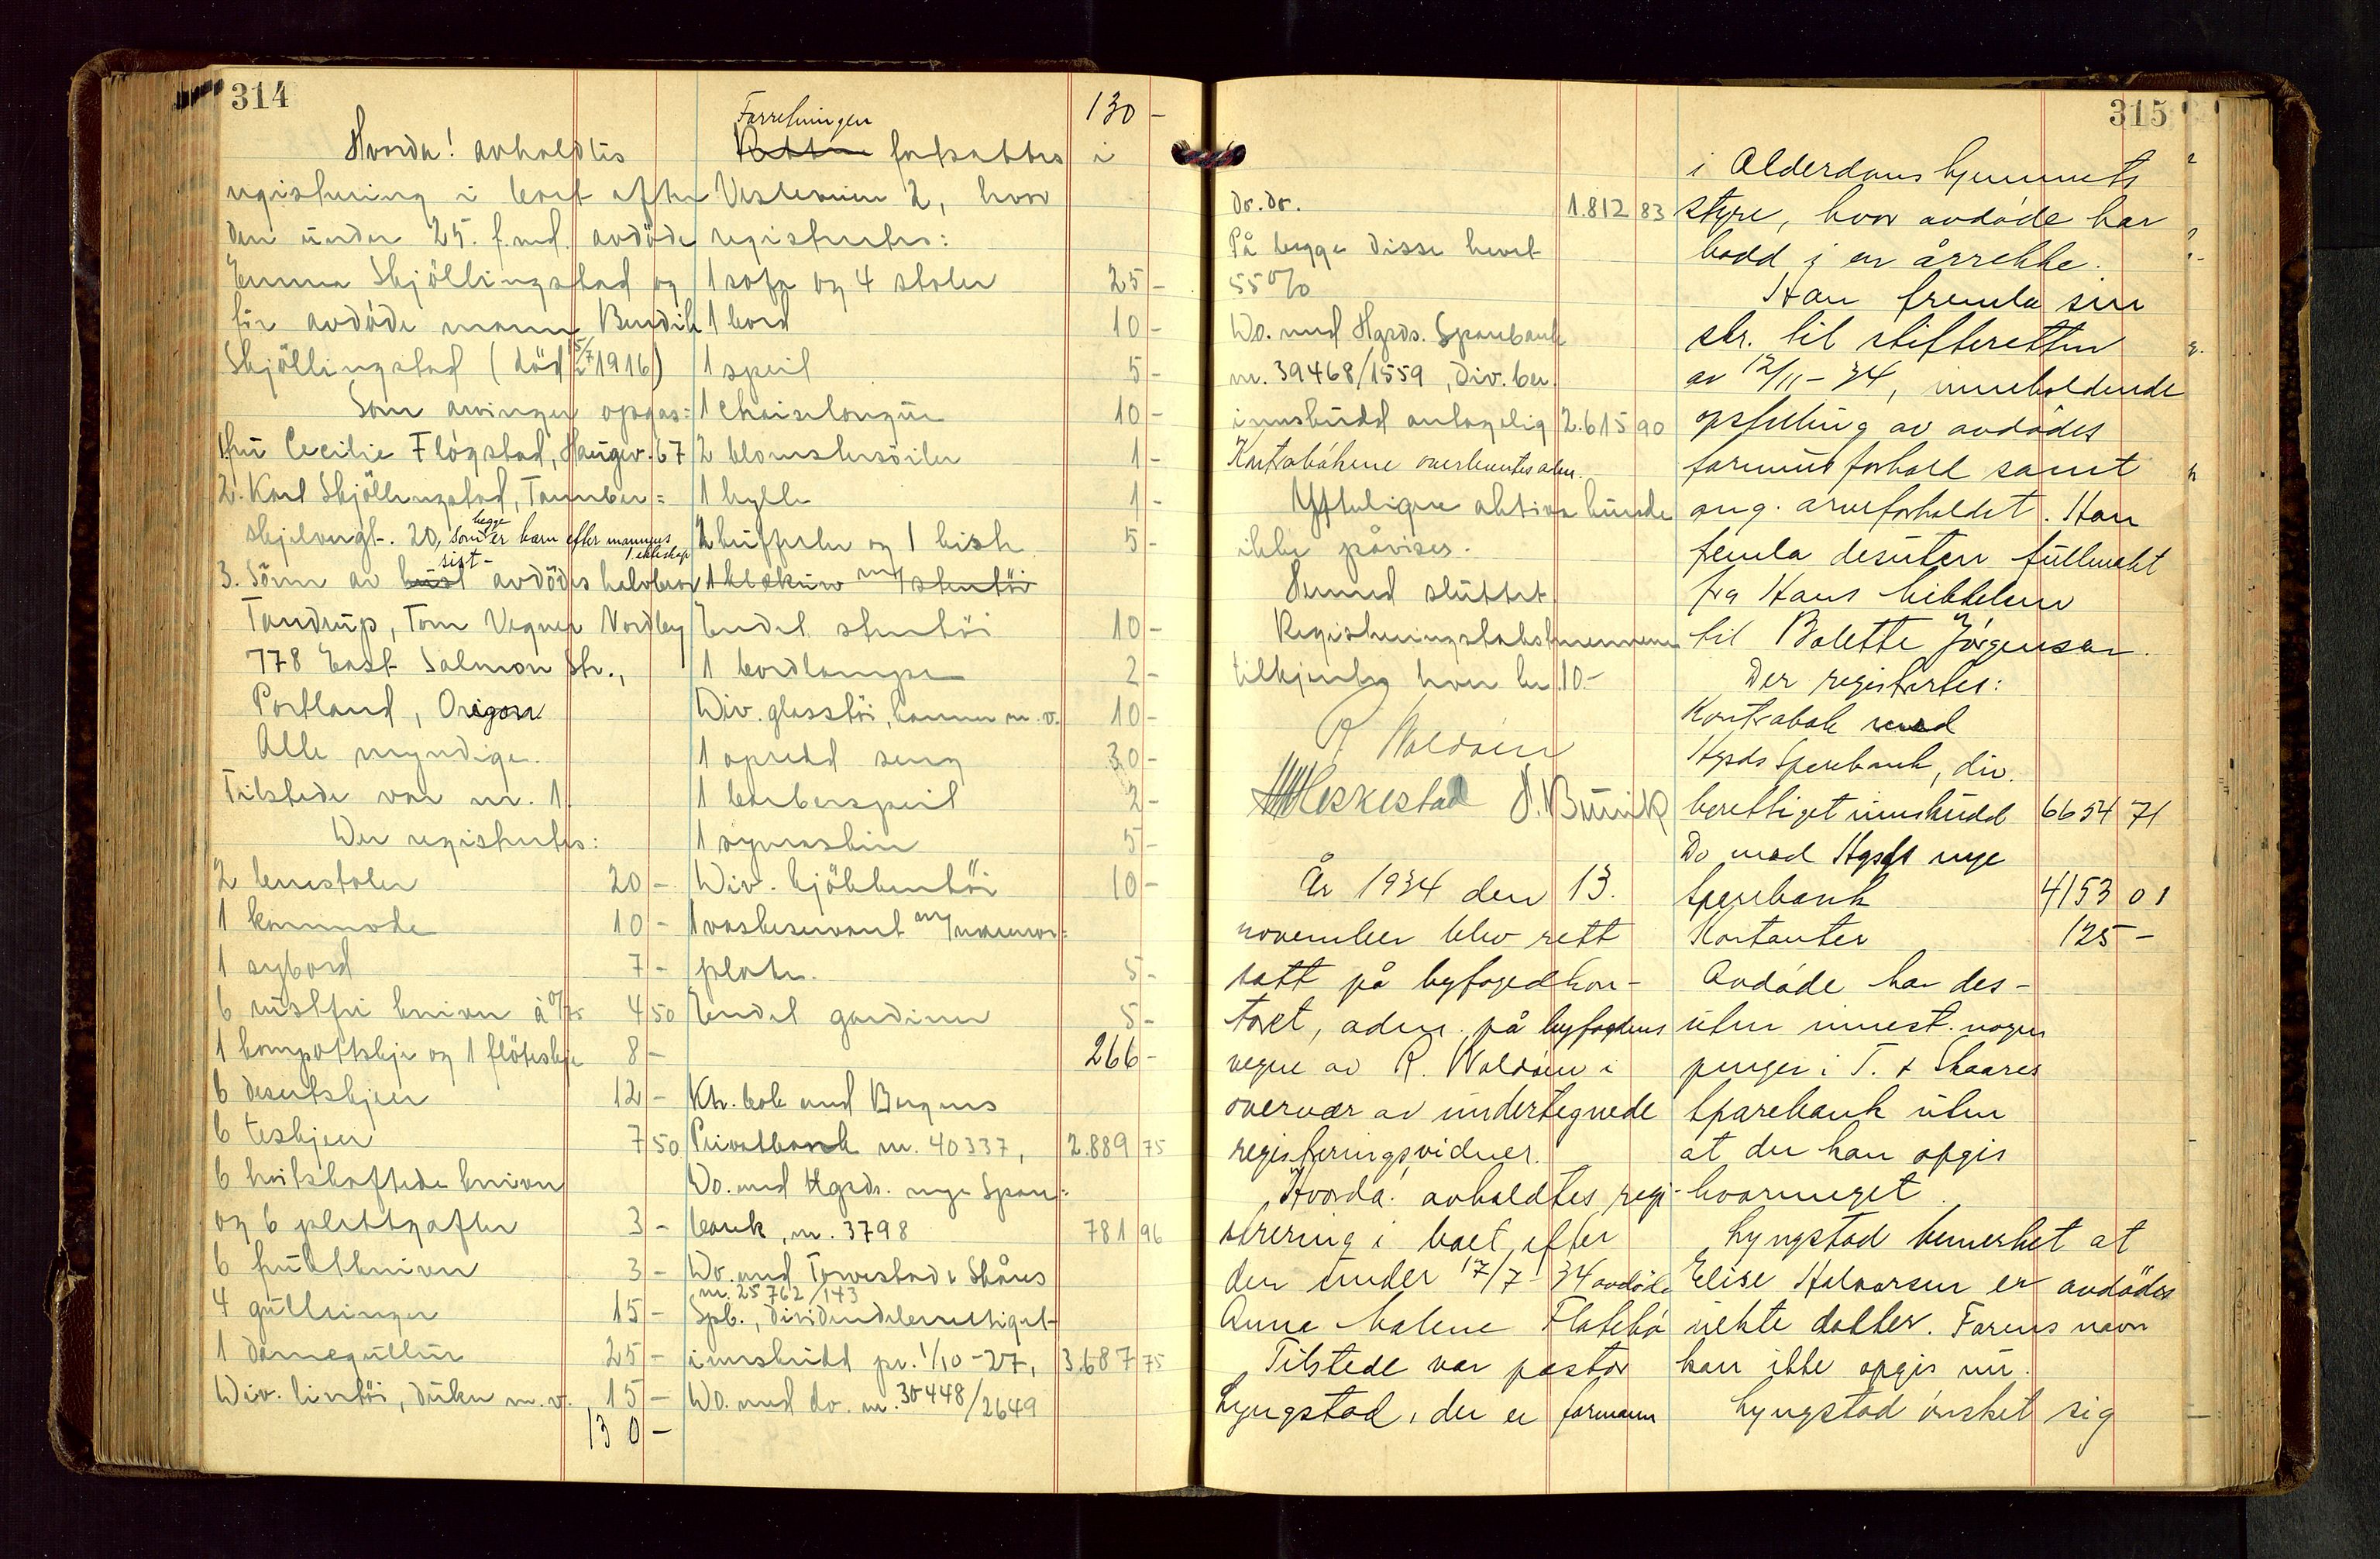 314
Hvorda! avholdtes
registrering i boet efter
den under 25. f.md. avdöde
Emma Skjöllingstad og
før avdøde mann Bendik
Skjöllingstad (död 5/7 1916)
Som arvinger opgas:
1. fru Cecilie Fløgstad, Haugev. 67
2. Karl Skjöllingstad, Tømber=
skjelvngt. 20, som begge er barn efter mannens
1. ekteskap
3. Sönn av sist- avdödes halvbror
Tandrup, Tom Vegner Nordby
778 East Salmon Str.,
Portland, Origon
Alle myndige.
Tilstede var nr. 1.
Der registrertes:
2 lenestoler 20 -
1 kommode 10 -
1 sybord 7 -
6 rustfri kniver à 0/75 4 50
1 kompottskje og 1 flöteskje 8 -
6 desertskjeer 12 -
6 teskjeer 7 50
6 hvitskaftede kniver
og 6 plettgafler 3 -
6 fruktkniver 3 -
4 gullringer 15 -
1 damegullur 25 -
Div. lintöi, duker m.v. 15 -
130 -
130 -
Forretningen
Retten forsattes i
Vestreveien 2, hvor
registrertes:
1 sofa og 4 stoler 25 -
1 bord 10 -
1 speil 5 -
1 chaiselongue 10 -
2 blomstersöiler 1 -
1 hylle 1 -
2 bufferter og 1 kiste 5 -
1 klækurv m/stentöi
Endel stentöi 10 -
1 bordlampe 2 -
Div. glasstöi, kanner m.v. 10 -
1 opredd seng 30 -
1 barberspeil 2 -
1 symaskin 5 -
Div. kjökkentöi 10 -
1 vaskeservant m/marmor=
plate. 5 -
Endel gardiner 5 -
266 -
Ktr. bok med Bergens
Privatbank nr. 40337, 2.889 75
Do. med Hgsds. nye Spare=
bank, nr. 3798 781 96
Do. med Torvestad & Skåres
nr. 25762/143
Spb., dividendeberettiget
innskudd pr. 1/10-27, 3.687 75
Do. med do. nr. 30448/2649
315
do. do. 1.812 83
På begge disse hevet
55%
Do. med Hgsds. Sparebank
nr. 39468/1559, div. ber.
innskudd antagelig 2.615 90
Kontrabökene overleveres aber.
Ytterligere aktiva kunde
ikke påvises.
Dermed sluttet.
Registreringstakstmennene
tilkjentes hver kr. 10.-
R Waldöen
Heskestad
År 1934 den 13.
november blev rett
satt på byfogedkon-
toret, adm. på byfogdens
vegne av R. Waldöen i
overvær av undertegnede
registreringsvidner.
Hvorda! avholdtes regi-
strering i boet efter
den under 17/7-34 avdöde
Anna Malene Flatebö
Tilstede var pastor
Lyngstad, der er formann
i Alderdomshjemmets
styre, hvor avdöde har
bodd i en årrekke.
Han fremla sin
skr. til skifteretten
av 12/11-34, inneholdende
opstilling av avdödes
formuesforhold samt
ang. arveforholdet. Han
femla desuten fullmakt
fra Hans Mikkelsen
til Bolette Jörgensen.
Der registrertes:
Kontrabok med
Hgsds Sparebank, div.
berettiget innskudd 6654 71
Do med Hgsds nye
Sparebank 4153 01
Kontanter 125 -
Avdöde har des-
uten innest. nogen
penger i T. & Skaares
Sparebank uten
at der kan opgis
hvormeget.
Lyngstad bemerket at
Elise Halvorsen er avdödes
uekte datter. Farens navn
kan ikke opgis nu.
Lyngstad önsket sig